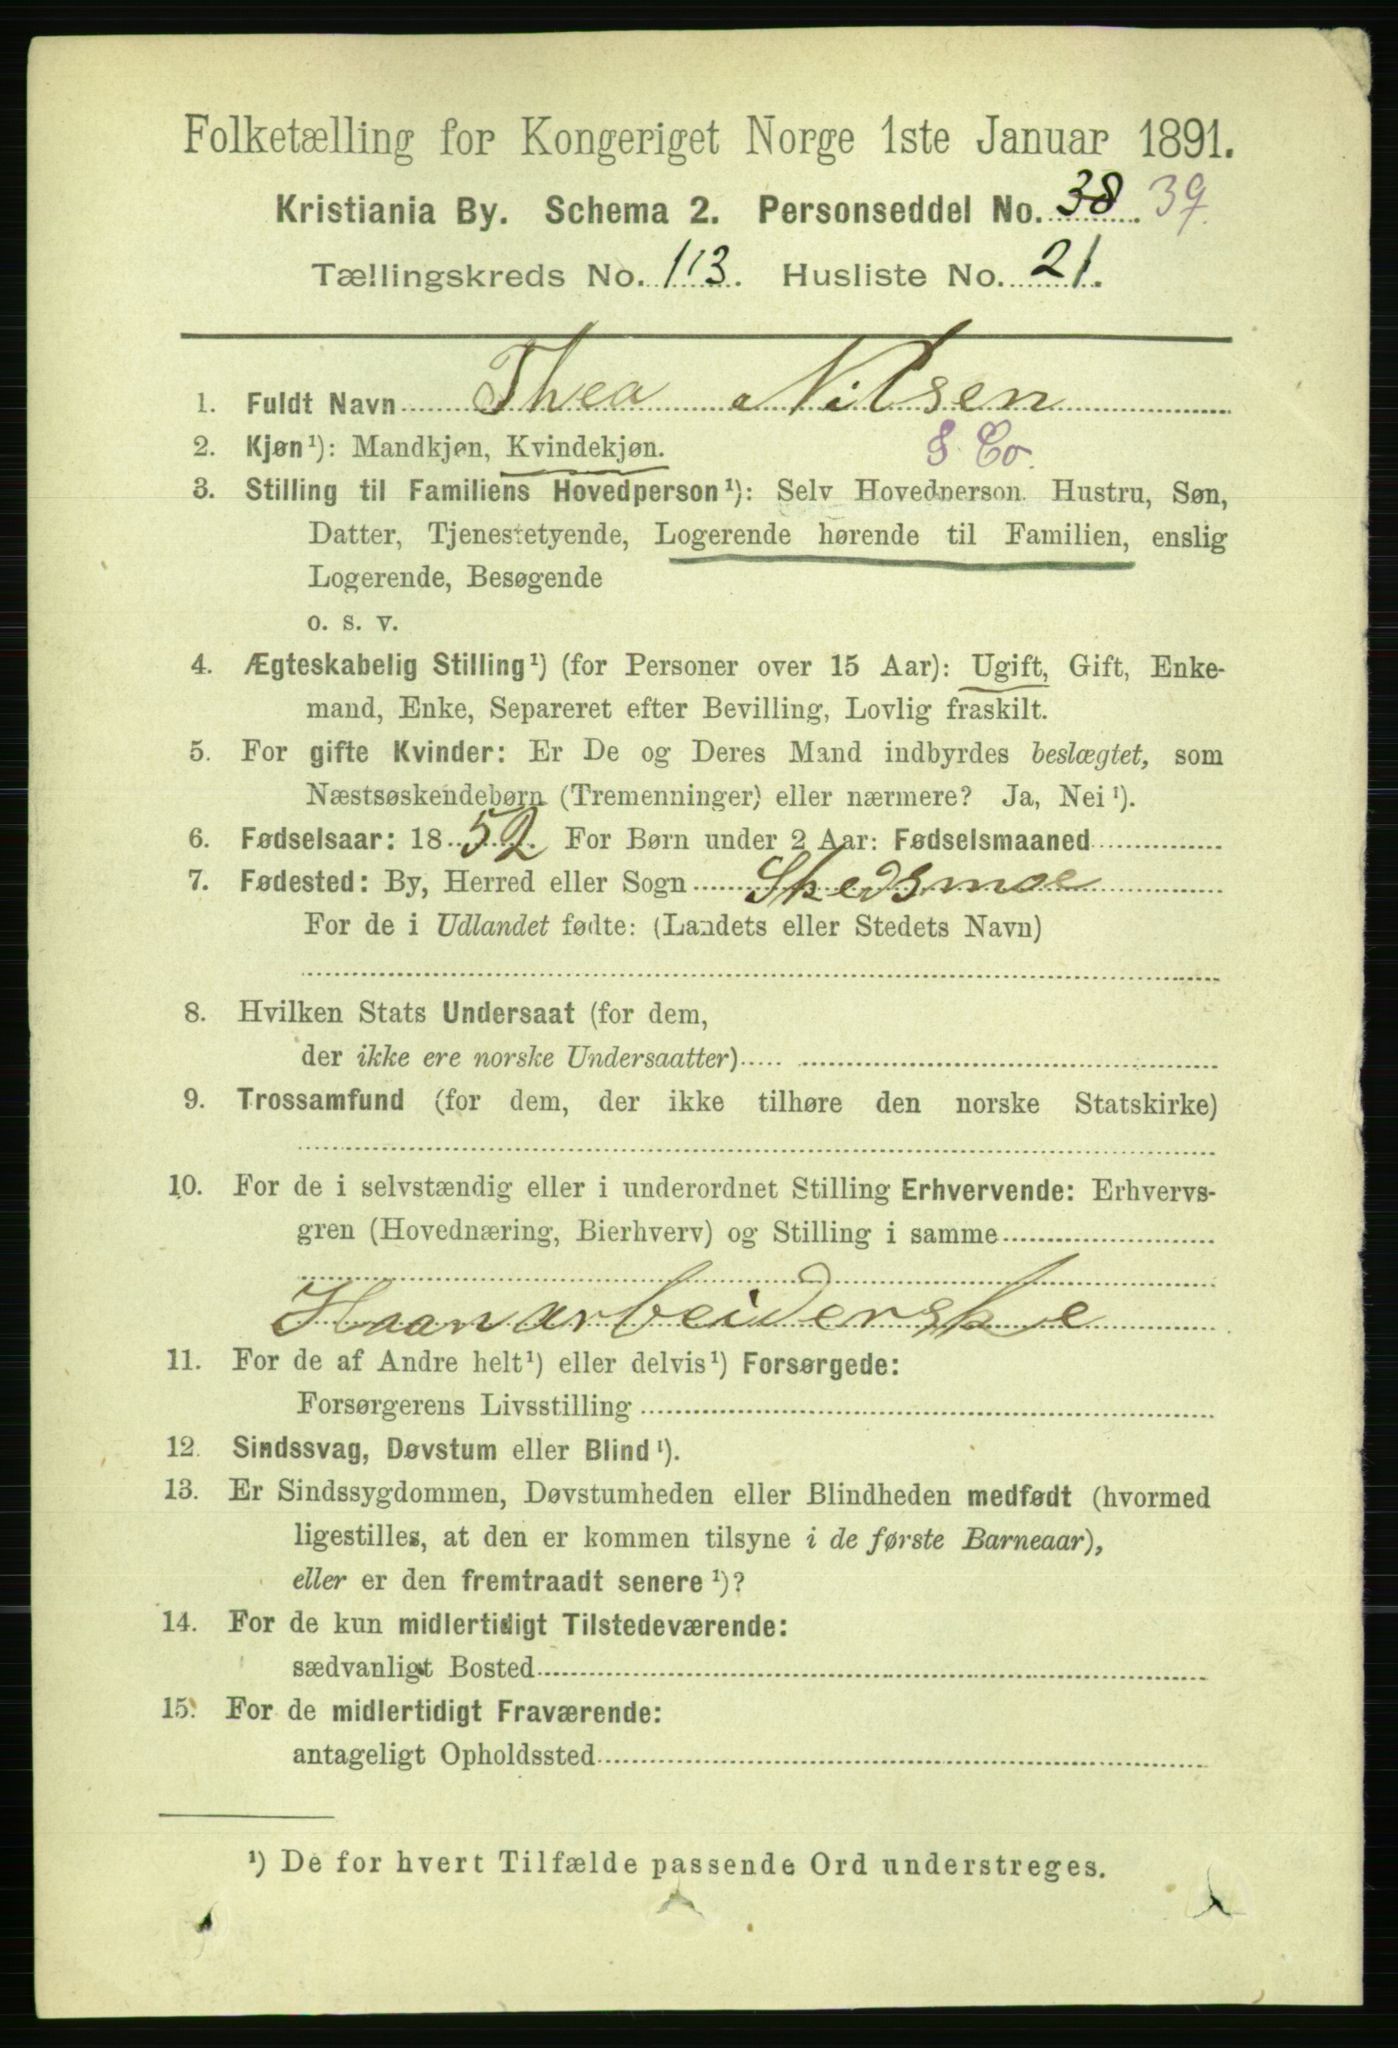 Folketælling for Kongeriget Norge 1ste Januar 1891.
Kristiania By. Schema 2. Personseddel No. 38. 39.
Tællingskreds No. 113. Husliste No. 21.
1. Fuldt Navn Thea Nilsen
2. Kjøn¹): Mandkjøn, Kvindekjøn. Co.
3. Stilling til Familiens Hovedperson¹): Selv Hovedperson. Hustru, Søn,
Datter, Tjenestetyende, Logerende hørende til Familien, enslig
Logerende, Besøgende
o. s. v.
4. Ægteskabelig Stilling¹) (for Personer over 15 Aar): Ugift, Gift, Enke-
mand, Enke, Separeret efter Bevilling, Lovlig fraskilt.
5. For gifte Kvinder: Er De og Deres Mand indbyrdes beslægtet, som
Næstsøskendebørn (Tremenninger) eller nærmere? Ja, Nei¹).
6. Fødselsaar: 1852 For Børn under 2 Aar: Fødselsmaaned
7. Fødested: By, Herred eller Sogn Skedsmoe
For de i Udlandet fødte: (Landets eller Stedets Navn)
8. Hvilken Stats Undersaat (for dem,
der ikke ere norske Undersaatter)
9. Trossamfund (for dem, der ikke tilhøre den norske Statskirke)
10. For de i selvstændig eller i underordnet Stilling Erhvervende: Erhvervs-
gren (Hovednæring, Bierhverv) og Stilling i samme
Haanarbeiderske
11. For de af Andre helt¹) eller delvis¹) Forsørgede:
Forsørgerens Livsstilling
12. Sindssvag, Døvstum eller Blind¹).
13. Er Sindssygdommen, Døvstumheden eller Blindheden medfødt (hvormed
ligestilles, at den er kommen tilsyne i de første Barneaar),
eller er den fremtraadt senere¹)?
14. For de kun midlertidigt Tilstedeværende:
sædvanligt Bosted
15. For de midlertidigt Fraværende:
antageligt Opholdssted
¹) De for hvert Tilfælde passende Ord understreges.